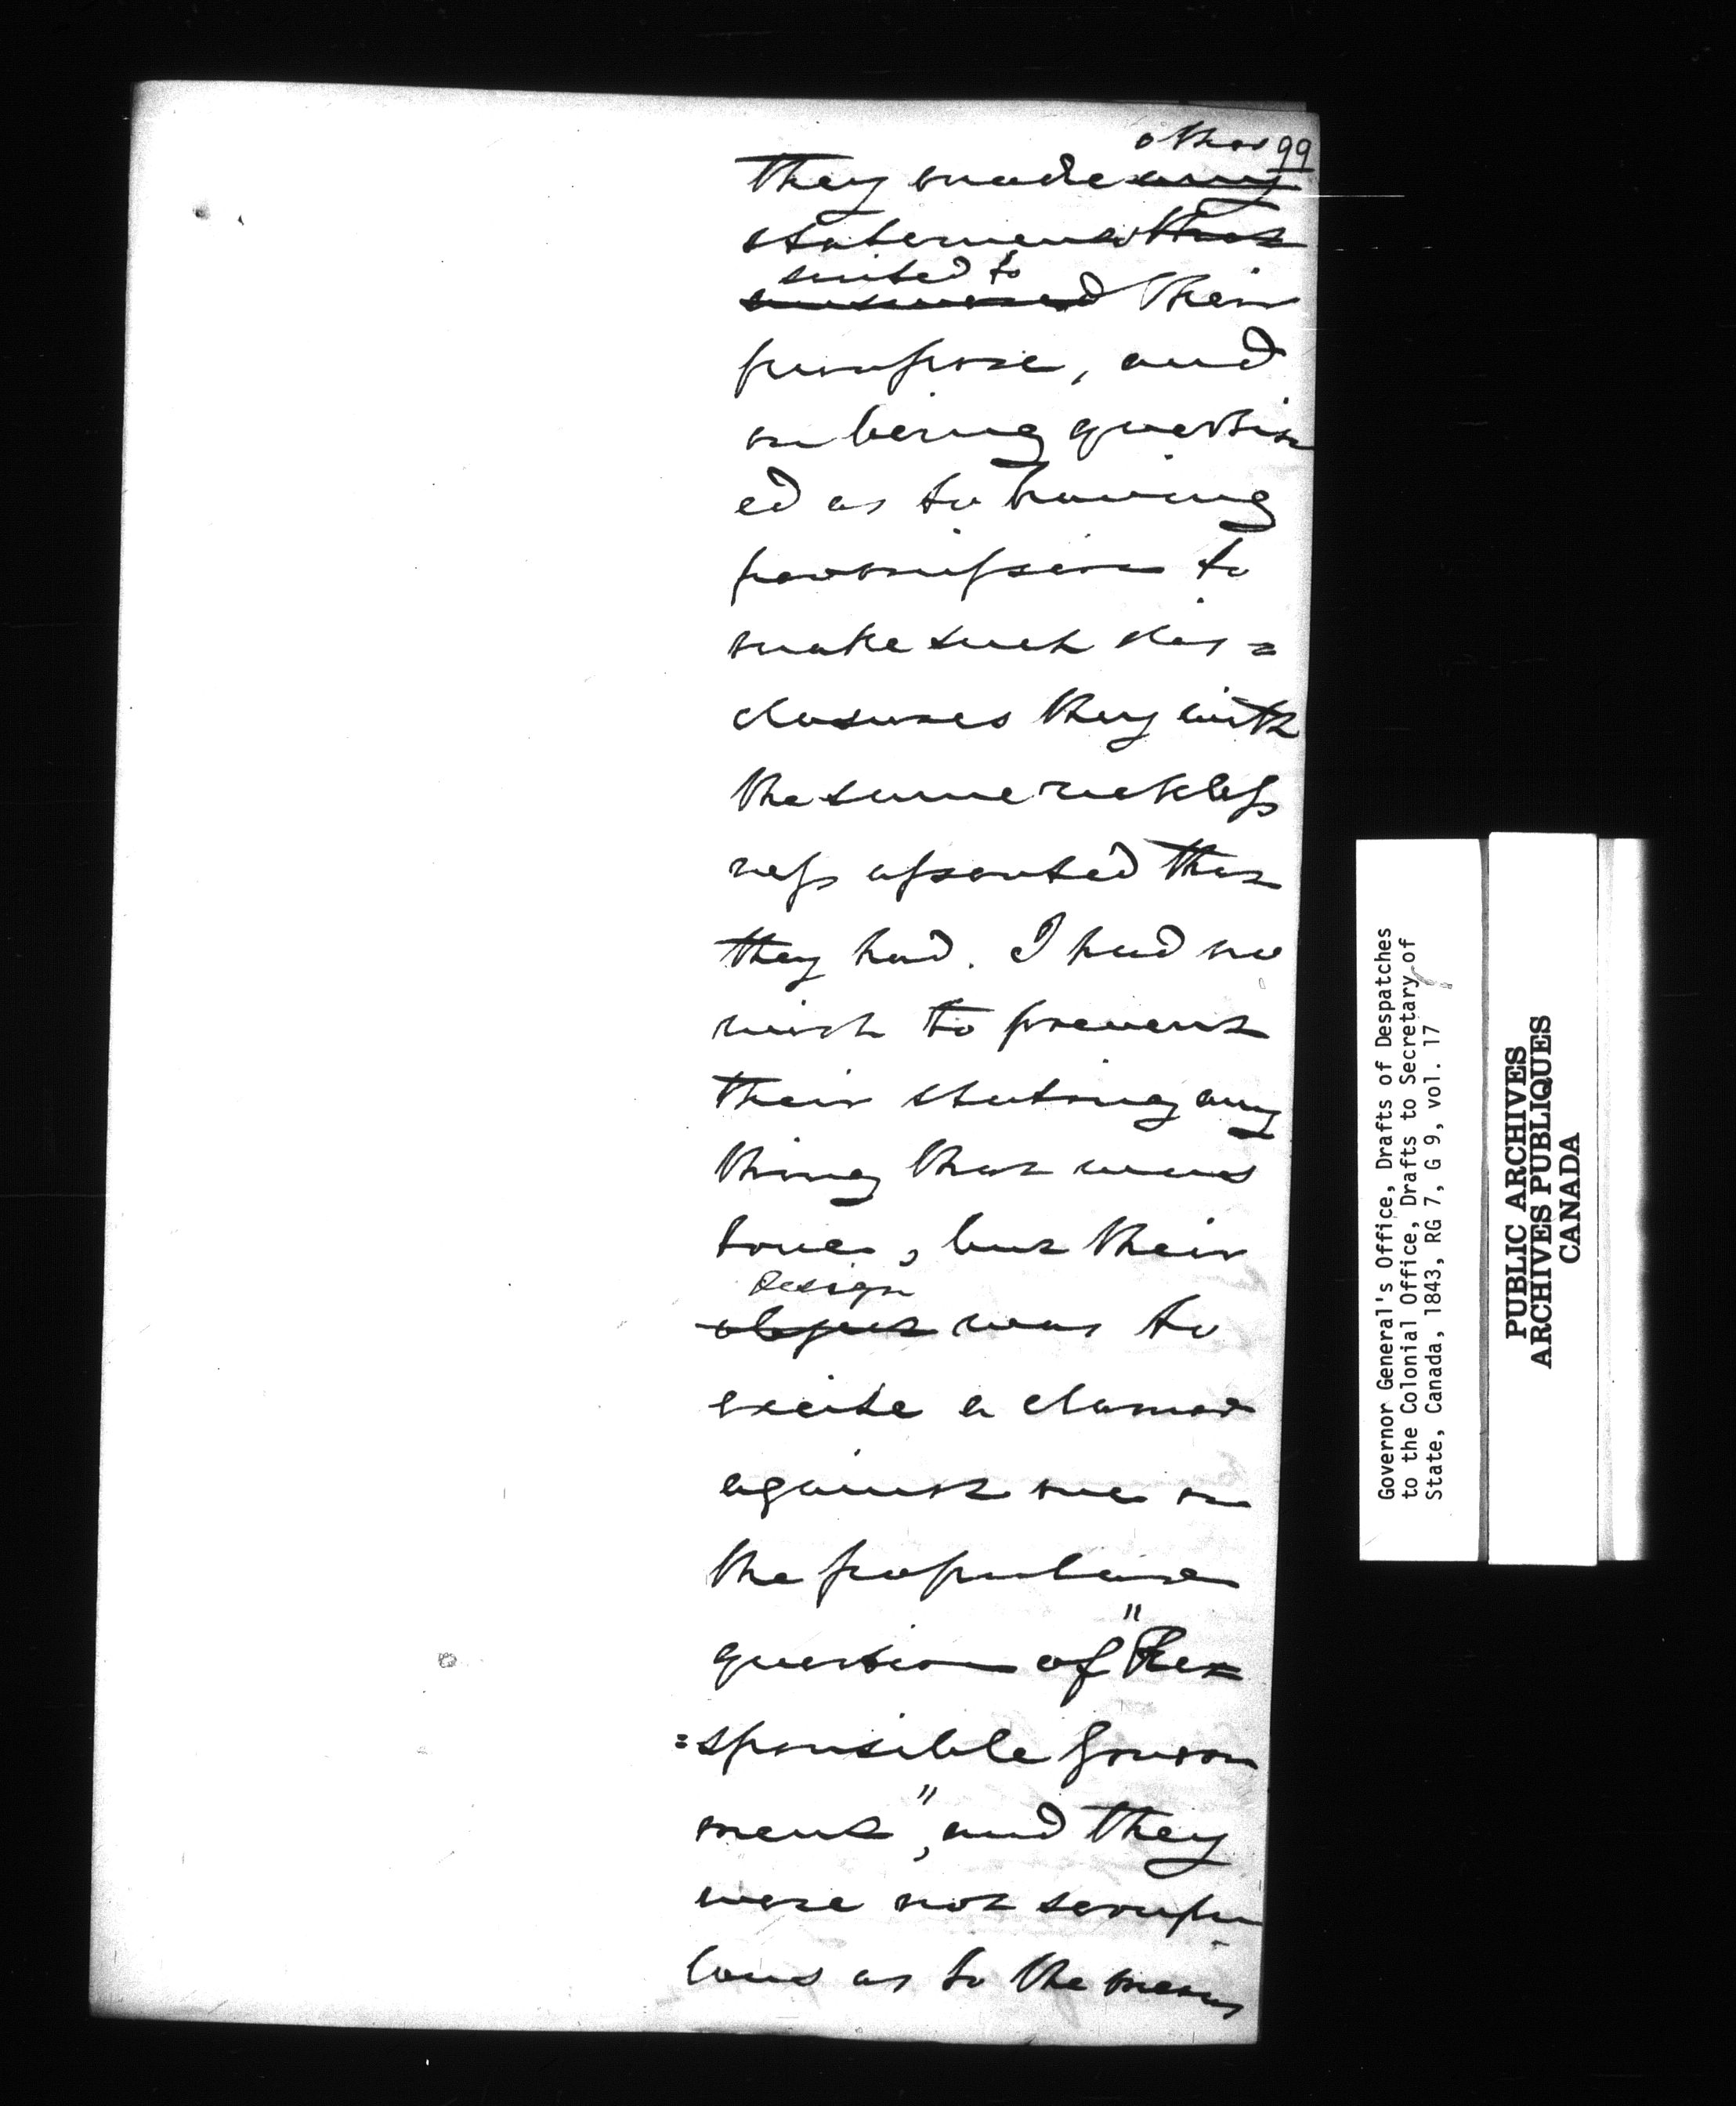 other 99
They made any
statements that
suited to
answered their
purpose, and
on being question
ed as to having
permission to
make such dis=
closures they with
the same reckless
ness asserted that
they had. I had no
wish to prevent
their stating any
thing that was
true, but their
Design
object was to
excite a clamor
against me on
the popular
question of "Re=
=sponsible Govern
ment", and they
were not scrupu
lous as to the means
Governor General's Office, Drafts of Despatches
to the Colonial Office, Drafts to Secretary of
State, Canada, 1843, RG 7, G 9, vol. 17
PUBLIC ARCHIVES
ARCHIVES PUBLIQUES
CANADA